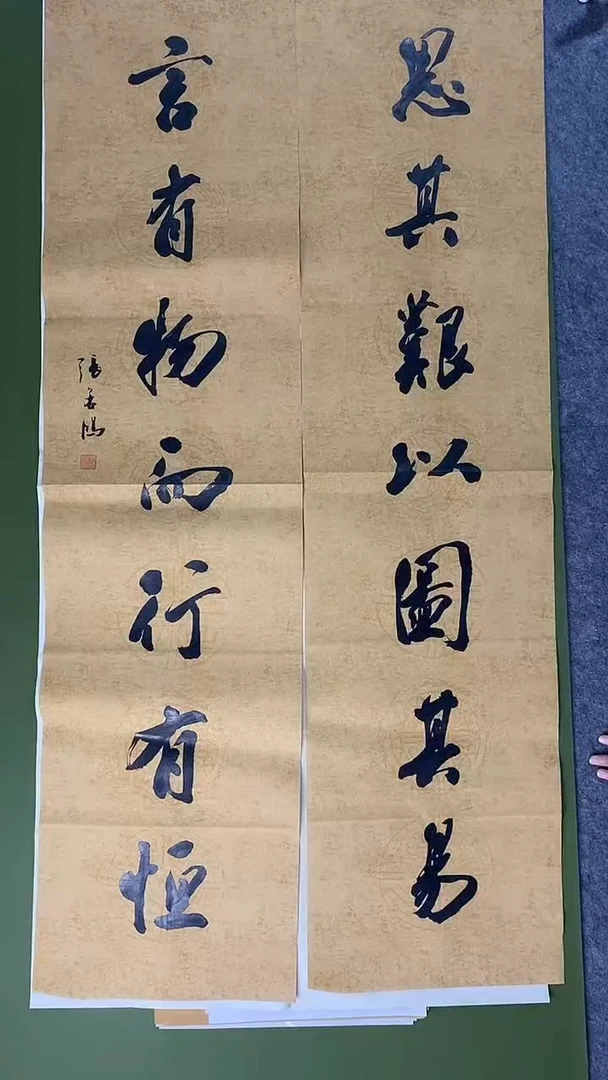 思其艱以圖其易
言有物而行有恒
張善鴻